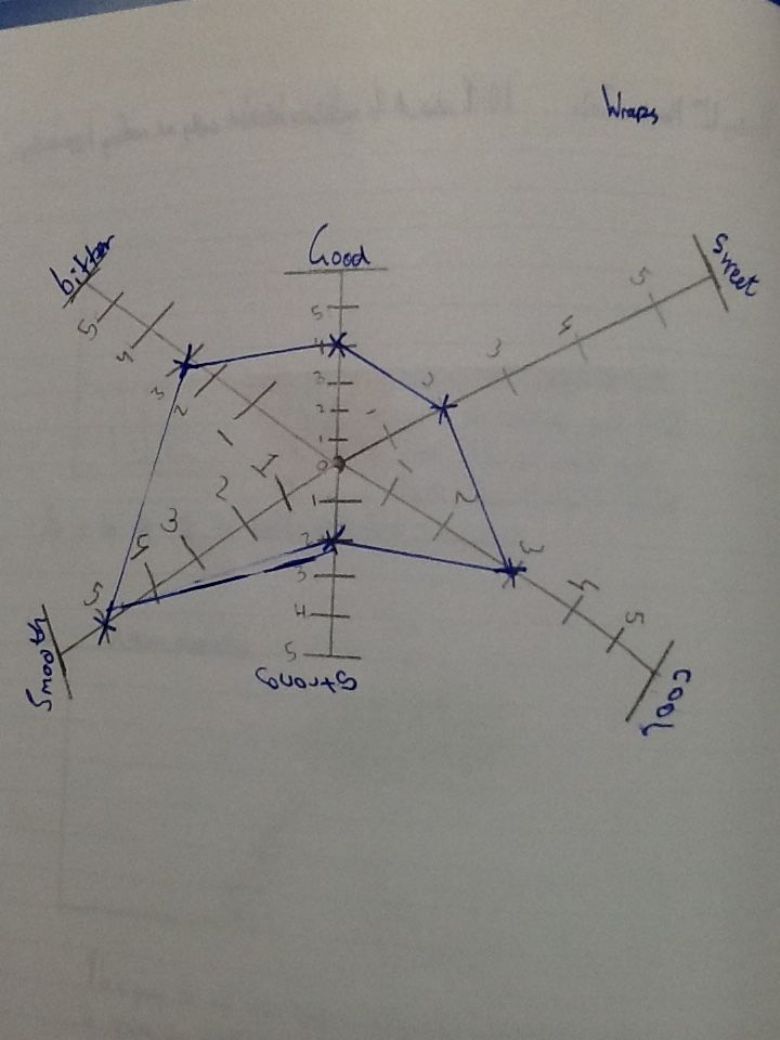 Wraps
Good
bitter
Sweet
5
5
5
4
4
4
3
3
3
2
2
2
1
1
1
0
1
1
1
2
2
2
3
3
3
4
4
4
5
5
5
Smooth
Strong
Cool